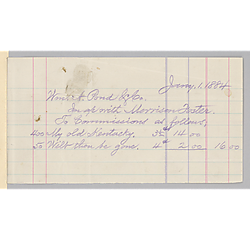 Jany. 1, 1884
Wm. A. Pond & Co.
In a/c with Morrison Foster.
To Commissions as follows,
400 My old Kentucky. 3½ 14 00
50 Wilt thou be gone. 4¢ 2 00 16 00